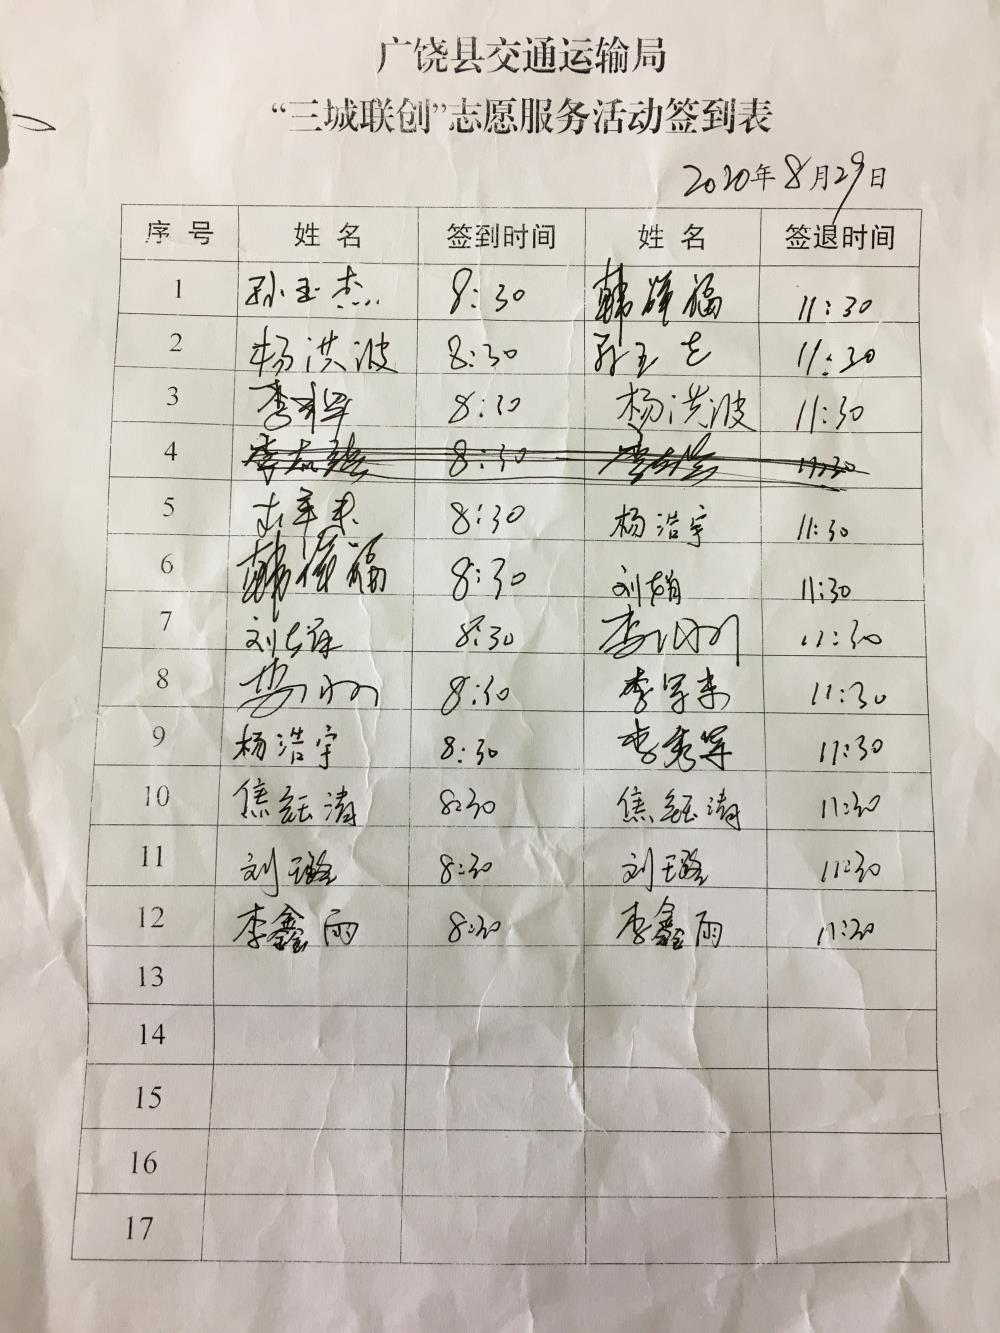 广饶县交通运输局
“三城联创”志愿服务活动签到表
2020年8月29日
序号 姓名 签到时间 姓名 签退时间
1 孙玉杰 8:30 韩 福 11:30
2 杨洪波 8:30 孙玉 11:30
3 李 8:30 杨洪波 11:30
4 李 8:30 李 11:30
5 8:30 杨浩宇 11:30
6 韩 福 8:30 刘 11:30
7 刘 8:30 李 11:30
8 8:30 李军 11:30
9 杨浩宇 8:30 李秀军 11:30
10 焦钰涛 8:30 焦钰涛 11:30
11 刘璐 8:30 刘璐 11:30
12 李鑫雨 8:30 李鑫雨 11:30
13
14
15
16
17